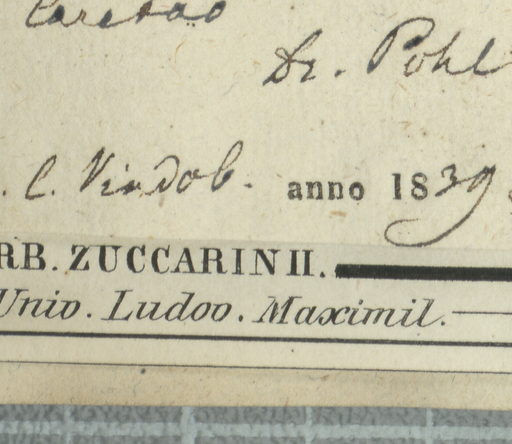 Caretao
Dr. Pohl
. C. Vindob. anno 1839
RB. ZUCCARINII.
Univ. Ludov. Maximil.